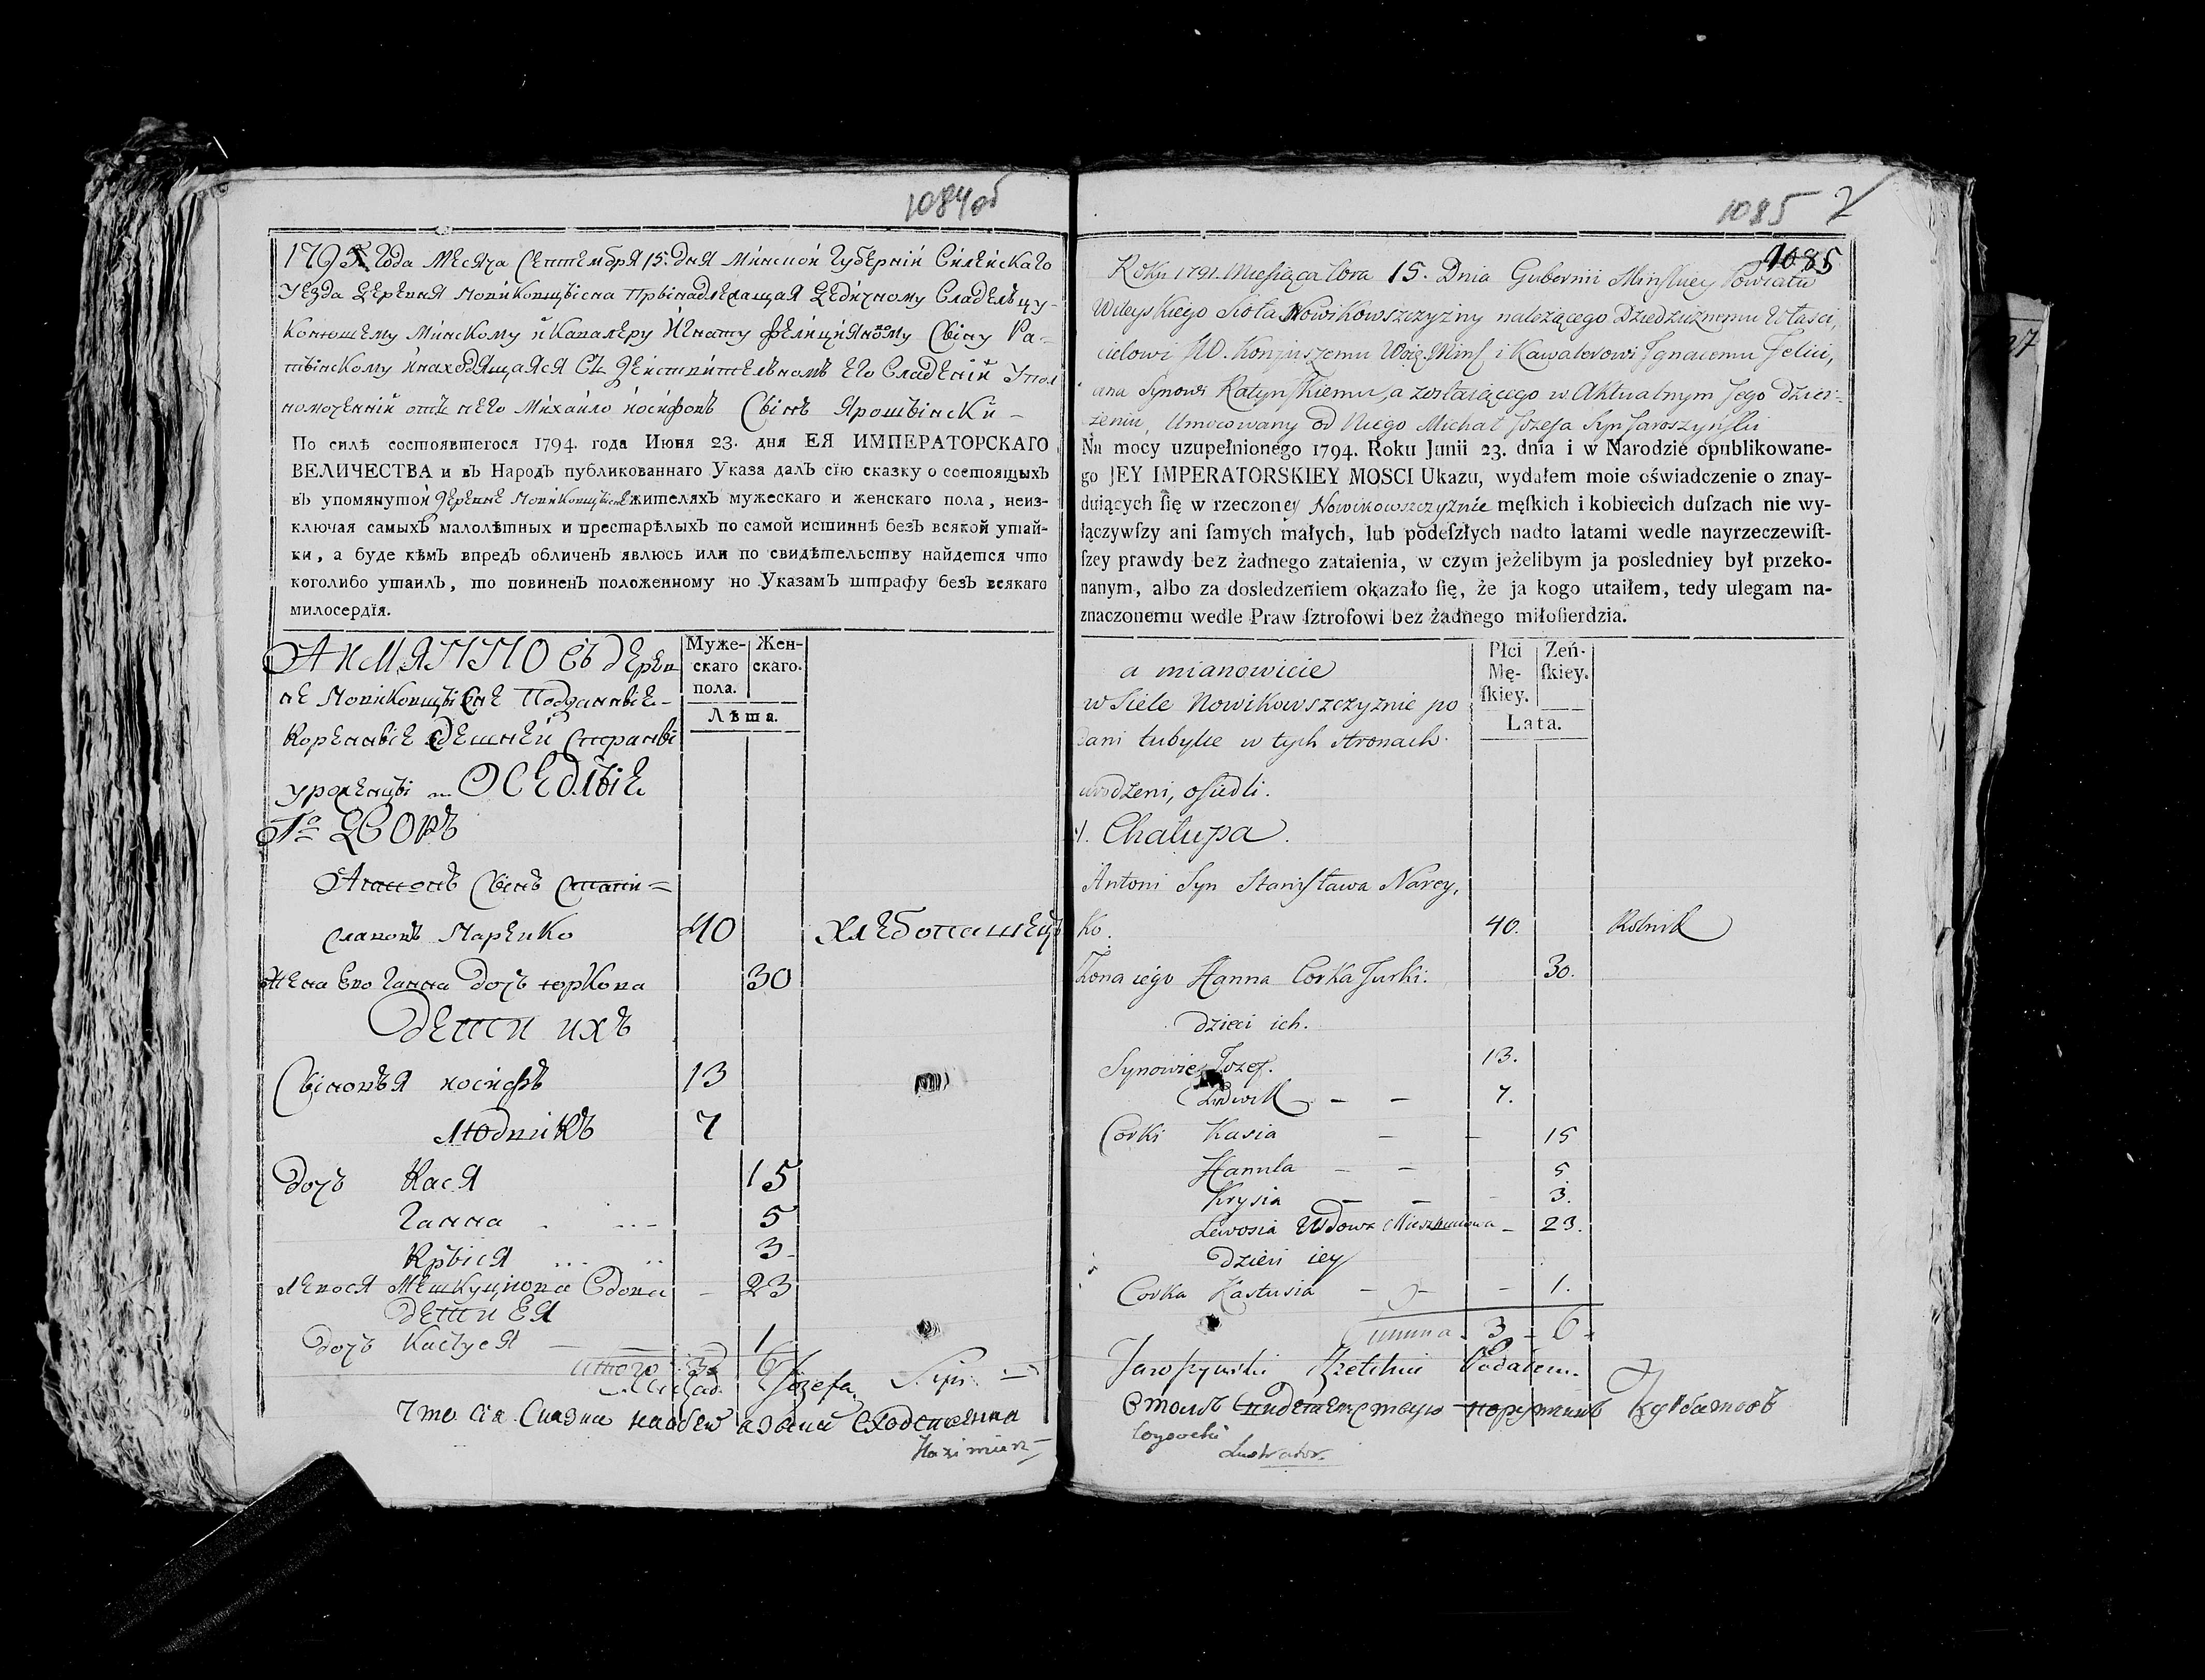 1084об
1795 года месяца Септембря 15. дня Минской Губерній Вилейскаго
Уезда деревня Новиковщызна Прынадлежащая дедичному Владельцу
Конюшему Минскому и Кавалеру Игнату Фелицияновому Сыну Ра-
тынскому инаходящаяся въ действительномъ его Владеній Упол
номоченній отъ него Михайло иосифовъ Сынъ Ярошынски
По силѣ состоявшегося 1794. года Июня 23. дня ЕЯ ИМПЕРАТОРСКАГО
ВЕЛИЧЕСТВА и въ Народъ публикованнаго Указа далъ сїю сказку о состоящыхъ
въ упомянутой деревне Новиковщызне жителяхъ мужескаго и женскаго пола, неиз-
ключая самыхъ малолѣтныхъ и престарѣлыхъ по самой истиннѣ безъ всякой утай-
ки, а буде кѣмъ впредъ обличенъ явлюсь или по свидѣтельству найдется что
коголибо утаилъ, то повиненъ положенному по Указамъ штрафу безъ всякаго
милосердїя.
Муже-скаго пола. Жен-скаго.
Лѣта.
А имянно въ дерев
не Новиковщызне Подданные
Коренные здешней Стораны
уроженцы Оседлые
1о Дворъ
Антонъ Сынъ Стани=
славовъ Нарейко 40 Хлебопашецъ
Жена Его Ганна Дочь юркова 30
Дети ихъ
Сыновья иосифъ 13
Людвикъ 7
Дочь Кася 15
Ганна 5
Крыся 3
Левося Мешкуцюва Вдова 23
Дети Ея
Дочь Кастуся 1
итого 3 6
Michał Józefa Syn
Что сія Сказка
Kazimierz
1085 2
1085
Roku 1791. Miesiąca 15. Dnia Gubernii Minskiey Powiatu
Wileyskiego Sioła Nowikowszczyzny należącego Dziedzicznemu Właści,
cielowi Konjuszemu Woiz. Minſ i Kawalerowi Ignacemu Felici,
ana Synowi Ratynſkiemu, a zostaiącego w Aktualnym Jego Dzier-
żeniu, Umocowany od Niego Michał Jozefa Syn Jaroszyńſki
Na mocy uzupełnionego 1794. Roku Junii 23. dnia i w Narodzie opublikowane-
go JEY IMPERATORSKIEY MOSCI Ukazu, wydałem moie oświadczenie o znay-
duiących ſię w rzeczoney Nowikowszczyznie męſkich i kobiecich duſzach nie wy-
łączywſzy ani ſamych małych, lub podeſzłych nadto latami wedle nayrzeczewiſt-
ſzey prawdy bez żadnego zataienia, w czym jeżelibym ja posledniey był przeko-
nanym, albo za dosledzeniem okazało ſię, że ja kogo utaiłem, tedy ulegam na-
znaczonemu wedle Praw ſztrofowi bez żadnego miłoſierdzia.
Płci Mę-ſkiey. Zeń-ſkiey.
Lata.
a mianowicie
w Siele Nowikowszczyznie po
dani tubylce w tych stronach
urodzeni, osiedli.
1. Chałupa.
Antoni Syn Stanisława Narey,
ko. 40. Rolnik
Żona iego Hanna Corka Jurki. 30.
Dzieci ich.
Synowie Jozef. 13.
Ludwik 7.
Corki Kasia 15
Hanula 5
Krysia 3.
Lewosia Wdowa 23.
Dzieci iey
Corka Kastusia 1.
Summa 3 6
Jaroszynski Podałem.
Lustrator.